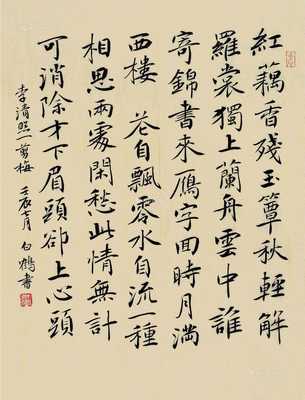 紅藕香殘玉簟秋輕解
羅裳獨上蘭舟雲中誰
寄錦書來雁字回時月滿
西樓 花自飄零水自流一種
相思兩處閑愁此情無計
可消除才下眉頭卻上心頭
李清照一剪梅 壬辰七月 白鶴書